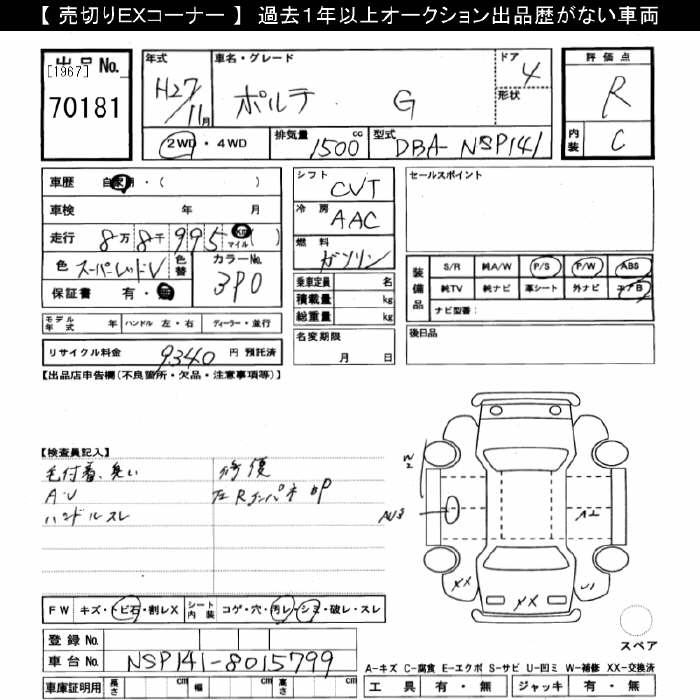 【 売切りEXコーナー 】 過去1年以上オークション出品歴がない車両
出品 No.
[1967]
70181
年式
H27/11月
車名・グレード
ポルテ G
ドア
4
形状
評価点
R
内装
C
2WD・4WD
排気量
1500 cc
型式
DBA-NSP141
車歴 自家用・( )
車検 年 月
走行 8万8千995 km マイル ( )
色 スーパーレッドV
色替
カラーNo.
3P0
保証書 有・無
シフト
CVT
冷房
AAC
燃料
ガソリン
乗車定員 名
積載量 kg
総重量 kg
セールスポイント
装備品
S/R 純A/W P/S P/W ABS
純TV 純ナビ 革シート 外ナビ エアB
ナビ型番:
モデル年式 年 ハンドル 左・右 ディーラー・並行
名変期限
月 日
後日品
リサイクル料金 9340 円 預託済
【出品店申告欄(不良箇所・欠品・注意事項等)】
【検査員記入】
毛付着、臭い
A・U
ハンドルスレ
修復
左Rインパネ凹P
W2
AU3
A2
XX
XX
U1
FW キズ・トビ石・割レX
シート内装 コゲ・穴・汚レ・シミ・破レ・スレ
登録 No.
車台 No. NSP141-8015799
車庫証明用 長さ cm 幅 cm 高さ cm
スペア
A-キズ C-腐食 E-エクボ S-サビ U-凹ミ W-補修 XX-交換済
工具 有・無 ジャッキ 有・無